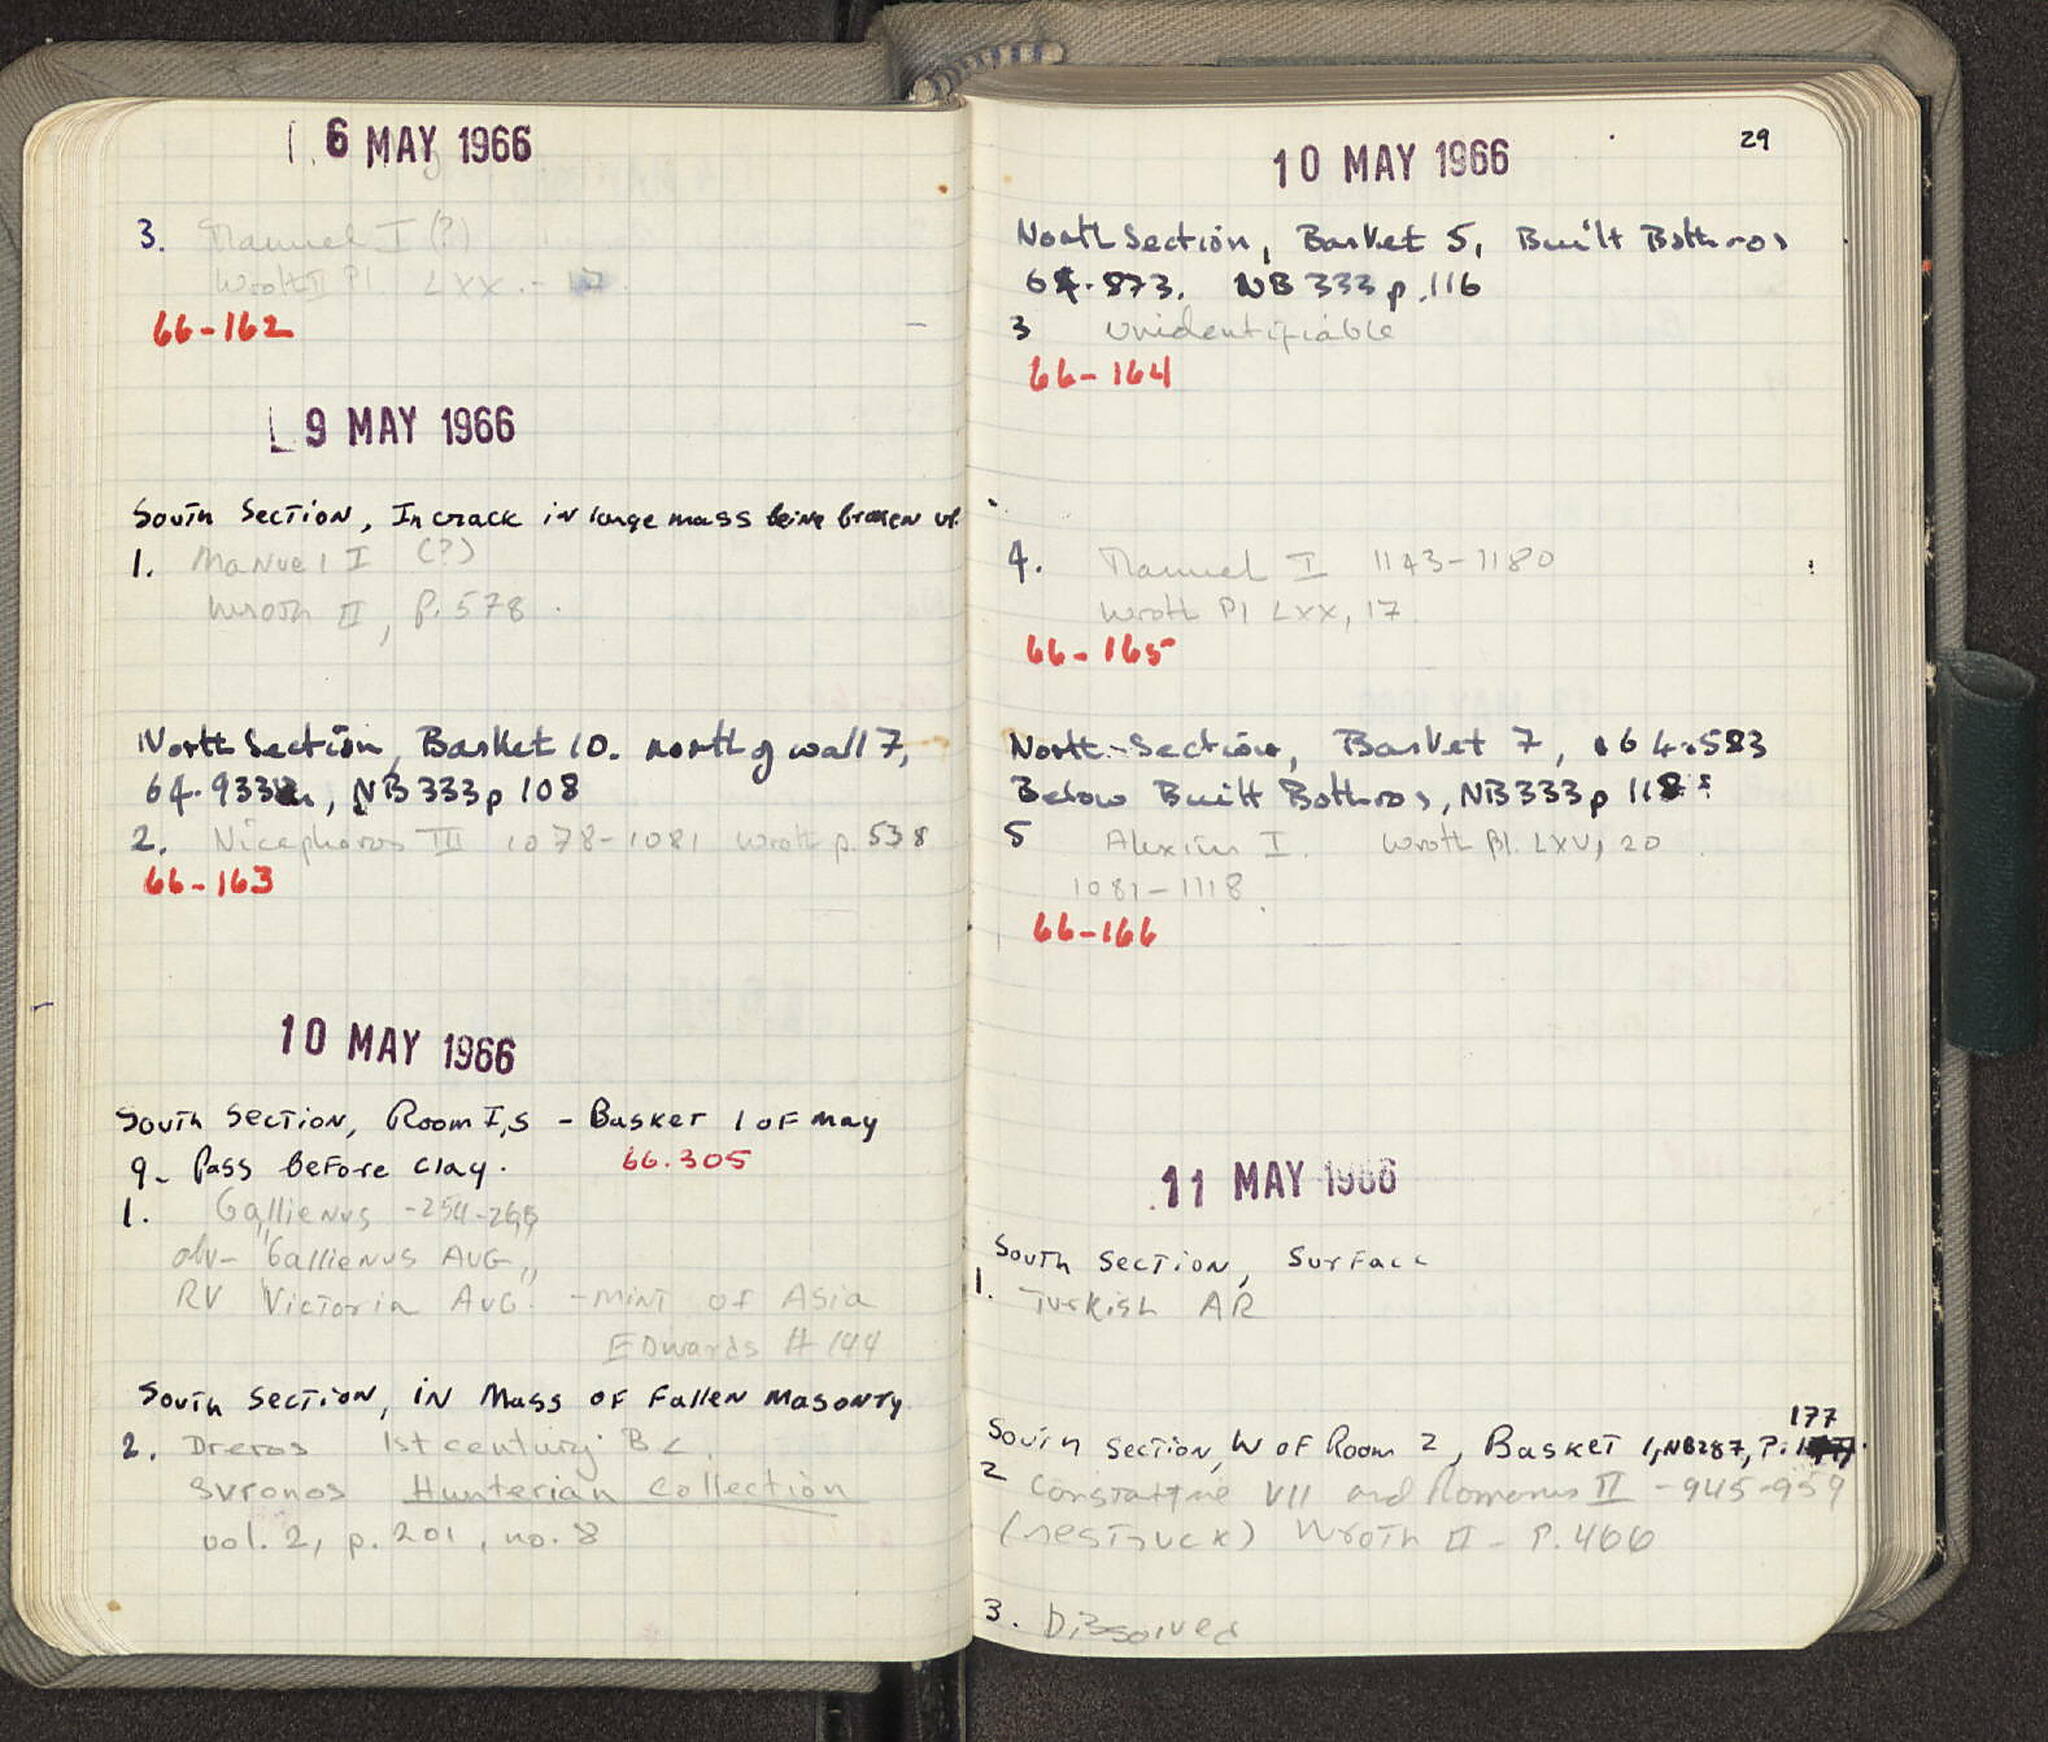 6 MAY 1966
3. Manuel I (?)
Wroth II Pl. LXX.- 17.
66-162
9 MAY 1966
South Section, In crack in large mass being broken up.
1. Manuel I (?)
Wroth II, P. 578.
North Section, Basket 10. north of wall 7,
64.933, NB 333 p 108
2. Nicephoros III 1078-1081 Wroth p. 538
66-163
10 MAY 1966
South Section, Room I,S - Basket 1 of May
9- Pass before clay. 66.305
1. Gallienus -254-268
obv- "Gallienus AUG"
RV "Victoria AUG. - mint of Asia
Edwards # 144
South Section, in Mass of Fallen Masonry
2. Dreros 1st century B C.
Svronos Hunterian Collection
vol. 2, p. 201, no. 8
29
10 MAY 1966
North Section, Basket 5, Built Bothros
64.873. NB 333 p. 116
3 unidentifiable
66-164
4. Manuel I 1143-1180
Wroth Pl LXX, 17
66-165
North-Section, Basket 7, 64.583
Below Built Bothros, NB 333 p 118
5 Alexius I. Wroth Pl. LXV, 20
1081-1118
66-166
11 MAY 1966
South Section, Surface
1. Turkish AR
177
South Section, W of Room 2, Basket 1, NB287, P.
2 Constantine VII and Romanus II - 945-959
(restruck) Wroth II - P. 466
3. Dissolved